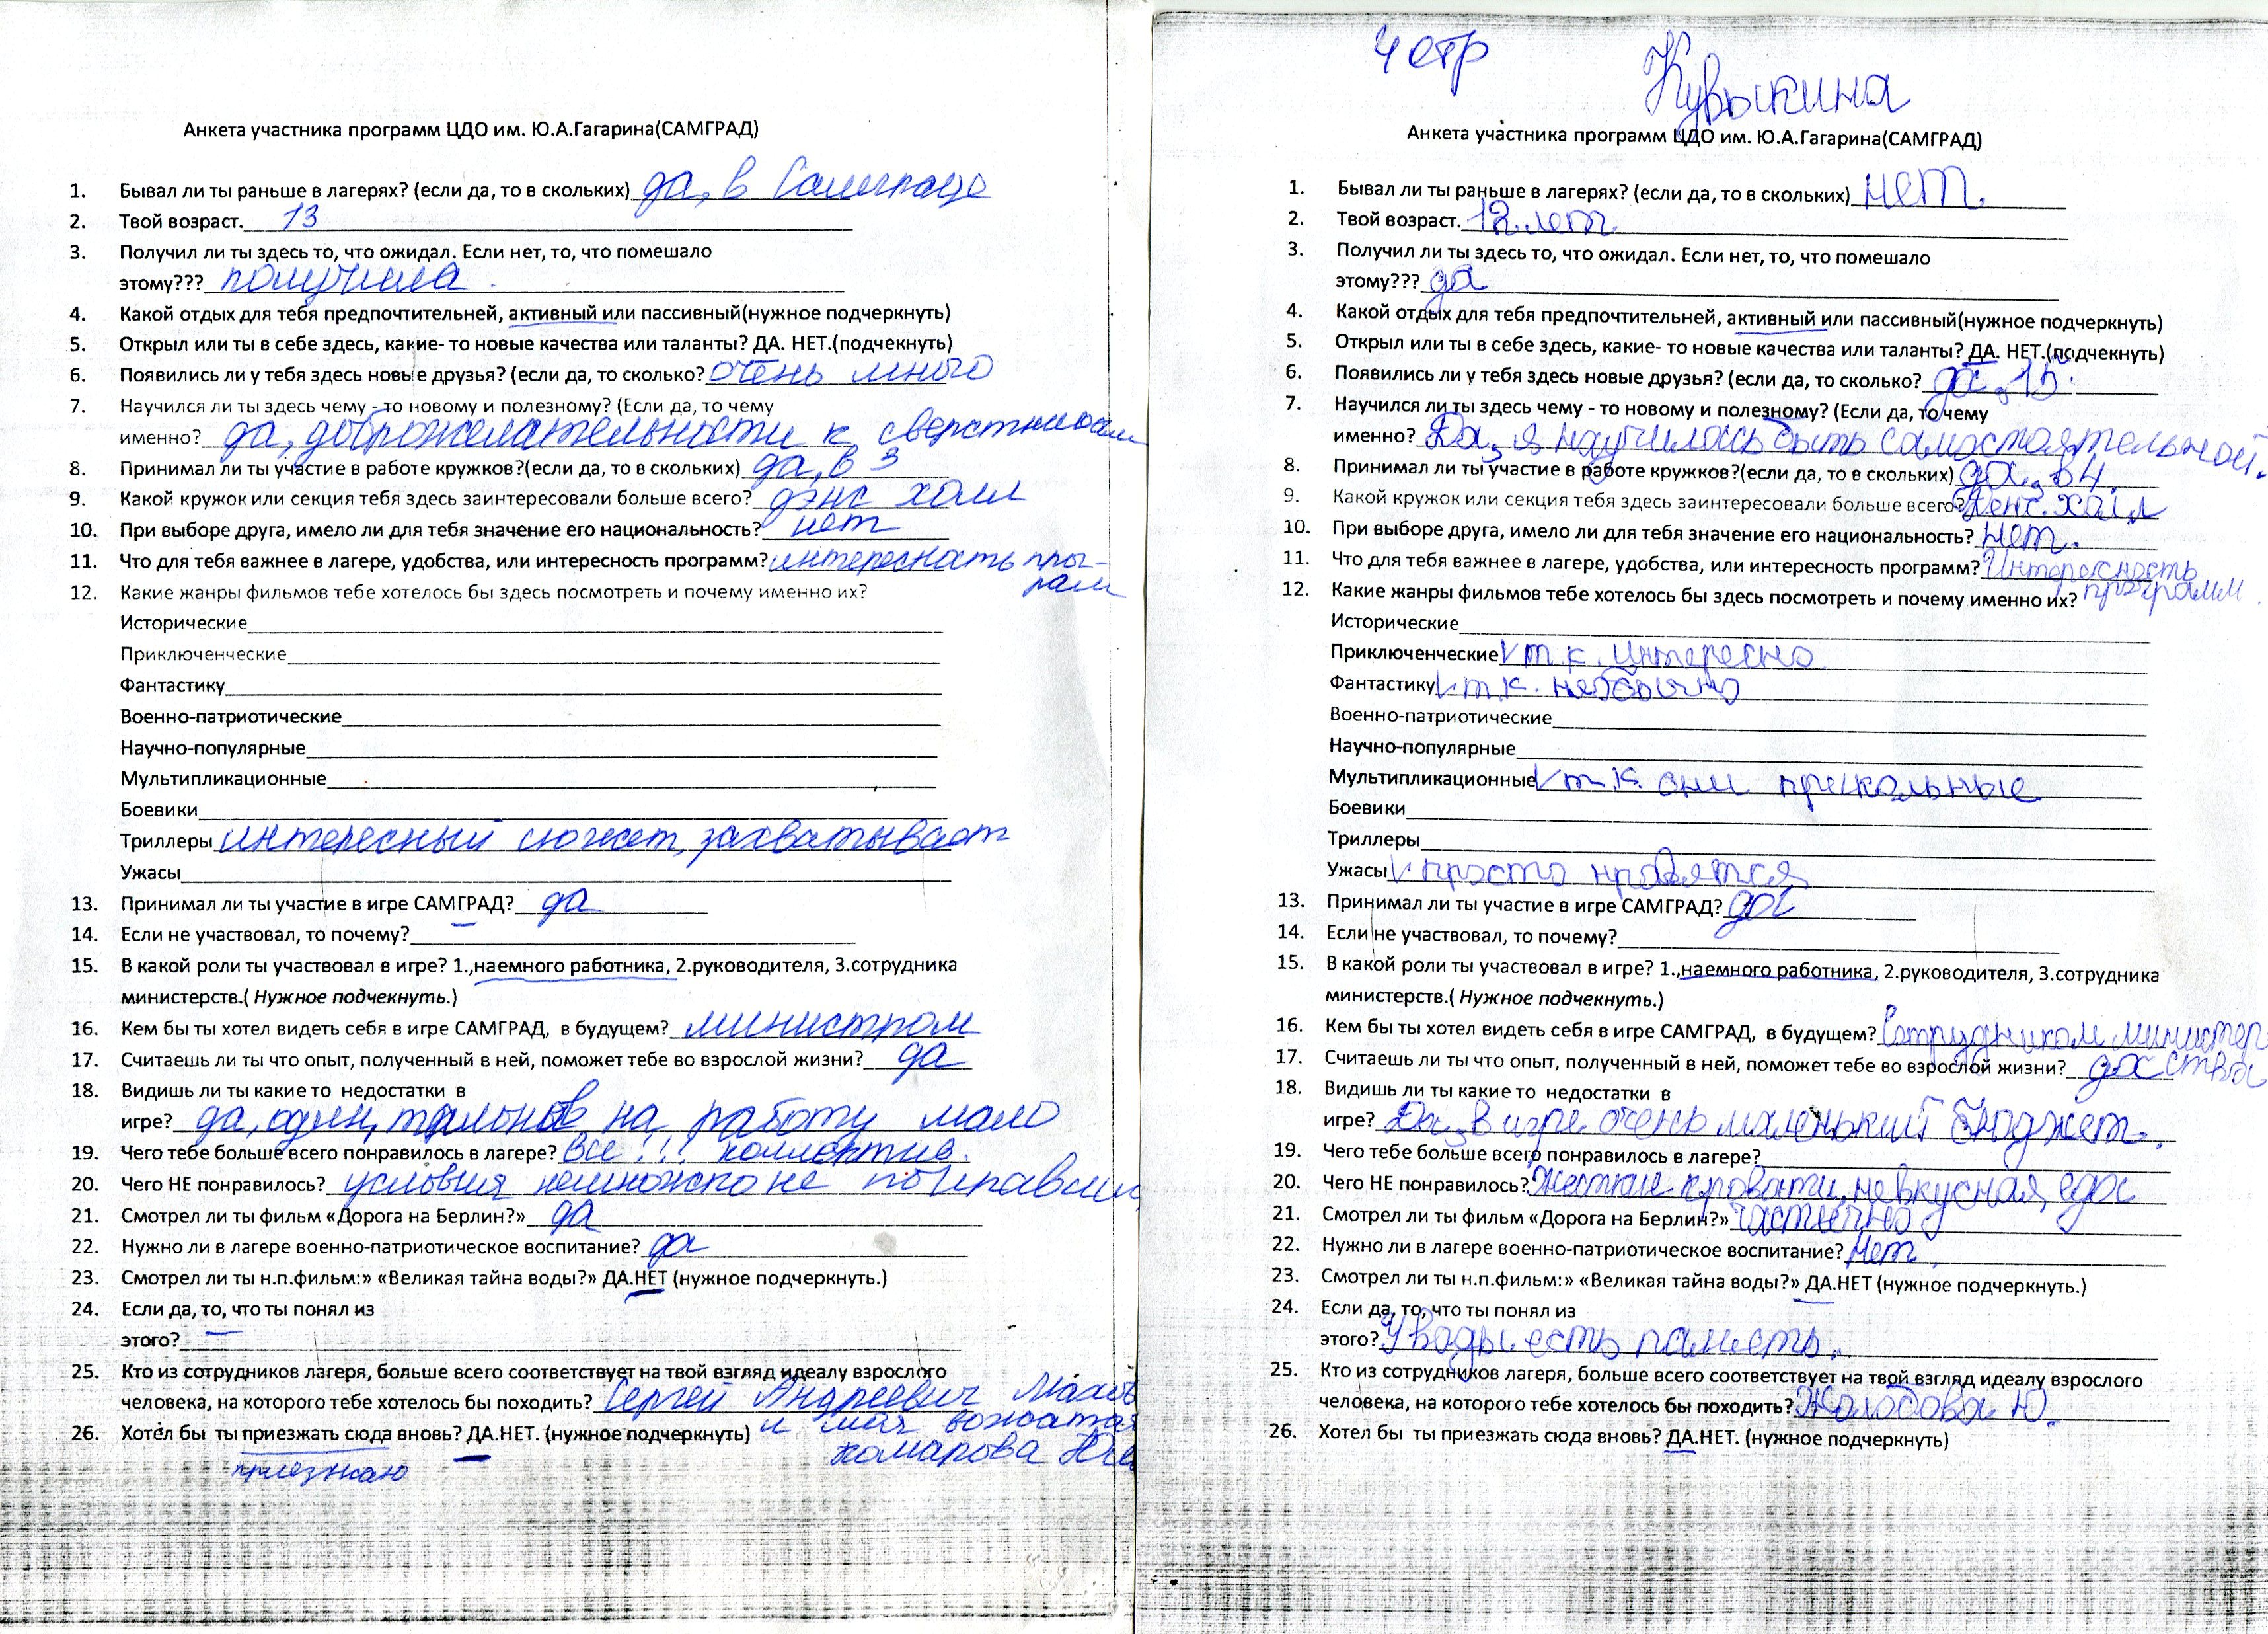 Анкета участника программ ЦДО им. Ю.А.Гагарина(САМГРАД)
1. Бывал ли ты раньше в лагерях? (если да, то в скольких) да, в Самграде
2. Твой возраст. 13
3. Получил ли ты здесь то, что ожидал. Если нет, то, что помешало
этому??? получила.
4. Какой отдых для тебя предпочтительней, активный или пассивный(нужное подчеркнуть)
5. Открыл или ты в себе здесь, какие- то новые качества или таланты? ДА. НЕТ.(подчекнуть)
6. Появились ли у тебя здесь новые друзья? (если да, то сколько? очень много
7. Научился ли ты здесь чему - то новому и полезному? (Если да, то чему
именно? да, доброжелательности к сверстникам
8. Принимал ли ты участие в работе кружков?(если да, то в скольких) да, в 3
9. Какой кружок или секция тебя здесь заинтересовали больше всего? дэнс холл
10. При выборе друга, имело ли для тебя значение его национальность? нет
11. Что для тебя важнее в лагере, удобства, или интересность программ? интересность
12. Какие жанры фильмов тебе хотелось бы здесь посмотреть и почему именно их?
Исторические
Приключенческие
Фантастику
Военно-патриотические
Научно-популярные
Мультипликационные
Боевики
Триллеры интересный сюжет, захватывает
Ужасы
13. Принимал ли ты участие в игре САМГРАД? да
14. Если не участвовал, то почему?
15. В какой роли ты участвовал в игре? 1.,наемного работника, 2.руководителя, 3.сотрудника
министерств.( Нужное подчекнуть.)
16. Кем бы ты хотел видеть себя в игре САМГРАД, в будущем? министром
17. Считаешь ли ты что опыт, полученный в ней, поможет тебе во взрослой жизни? да
18. Видишь ли ты какие то недостатки в
игре? да, один, талонов на работу мало
19. Чего тебе больше всего понравилось в лагере? все!!! коллектив.
20. Чего НЕ понравилось? условия немножко не
21. Смотрел ли ты фильм «Дорога на Берлин?» да
22. Нужно ли в лагере военно-патриотическое воспитание? да
23. Смотрел ли ты н.п.фильм:» «Великая тайна воды?» ДА.НЕТ (нужное подчеркнуть.)
24. Если да, то, что ты понял из
этого?
25. Кто из сотрудников лагеря, больше всего соответствует на твой взгляд идеалу взрослого
человека, на которого тебе хотелось бы походить? Сергей Андреевич
26. Хотел бы ты приезжать сюда вновь? ДА.НЕТ. (нужное подчеркнуть) и моя вожатая
приезжаю Комарова
4 стр
Кувыкина
Анкета участника программ ЦДО им. Ю.А.Гагарина(САМГРАД)
1. Бывал ли ты раньше в лагерях? (если да, то в скольких) нет.
2. Твой возраст. 12 лет.
3. Получил ли ты здесь то, что ожидал. Если нет, то, что помешало
этому??? да
4. Какой отдых для тебя предпочтительней, активный или пассивный(нужное подчеркнуть)
5. Открыл или ты в себе здесь, какие- то новые качества или таланты? ДА. НЕТ.(подчекнуть)
6. Появились ли у тебя здесь новые друзья? (если да, то сколько? да, 15.
7. Научился ли ты здесь чему - то новому и полезному? (Если да, то чему
именно? Да, я научилась быть самостоятельной.
8. Принимал ли ты участие в работе кружков?(если да, то в скольких) да, в 4.
9. Какой кружок или секция тебя здесь заинтересовали больше всего? Денс. холл
10. При выборе друга, имело ли для тебя значение его национальность? нет.
11. Что для тебя важнее в лагере, удобства, или интересность программ? Интересность
12. Какие жанры фильмов тебе хотелось бы здесь посмотреть и почему именно их? программ.
Исторические
Приключенческие v т.к. интересно
Фантастику v т.к. необычно
Военно-патриотические
Научно-популярные
Мультипликационные v т.к. они прикольные
Боевики
Триллеры
Ужасы v просто нравятся
13. Принимал ли ты участие в игре САМГРАД? да
14. Если не участвовал, то почему?
15. В какой роли ты участвовал в игре? 1.,наемного работника, 2.руководителя, 3.сотрудника
министерств.( Нужное подчекнуть.)
16. Кем бы ты хотел видеть себя в игре САМГРАД, в будущем? Сотрудником министер
17. Считаешь ли ты что опыт, полученный в ней, поможет тебе во взрослой жизни? да ства
18. Видишь ли ты какие то недостатки в
игре? Да, в игре очень маленький бюджет.
19. Чего тебе больше всего понравилось в лагере?
20. Чего НЕ понравилось? Жесткие кровати, невкусная еда
21. Смотрел ли ты фильм «Дорога на Берлин?» частично
22. Нужно ли в лагере военно-патриотическое воспитание? Нет.
23. Смотрел ли ты н.п.фильм:» «Великая тайна воды?» ДА.НЕТ (нужное подчеркнуть.)
24. Если да, то, что ты понял из
этого? У воды есть память.
25. Кто из сотрудников лагеря, больше всего соответствует на твой взгляд идеалу взрослого
человека, на которого тебе хотелось бы походить? Холодова Ю.
26. Хотел бы ты приезжать сюда вновь? ДА.НЕТ. (нужное подчеркнуть)